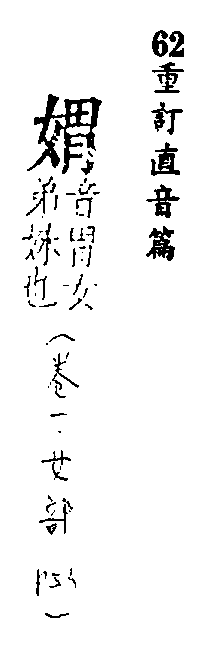 62重訂直音篇
媦音胃女弟妹也（卷一·女部）